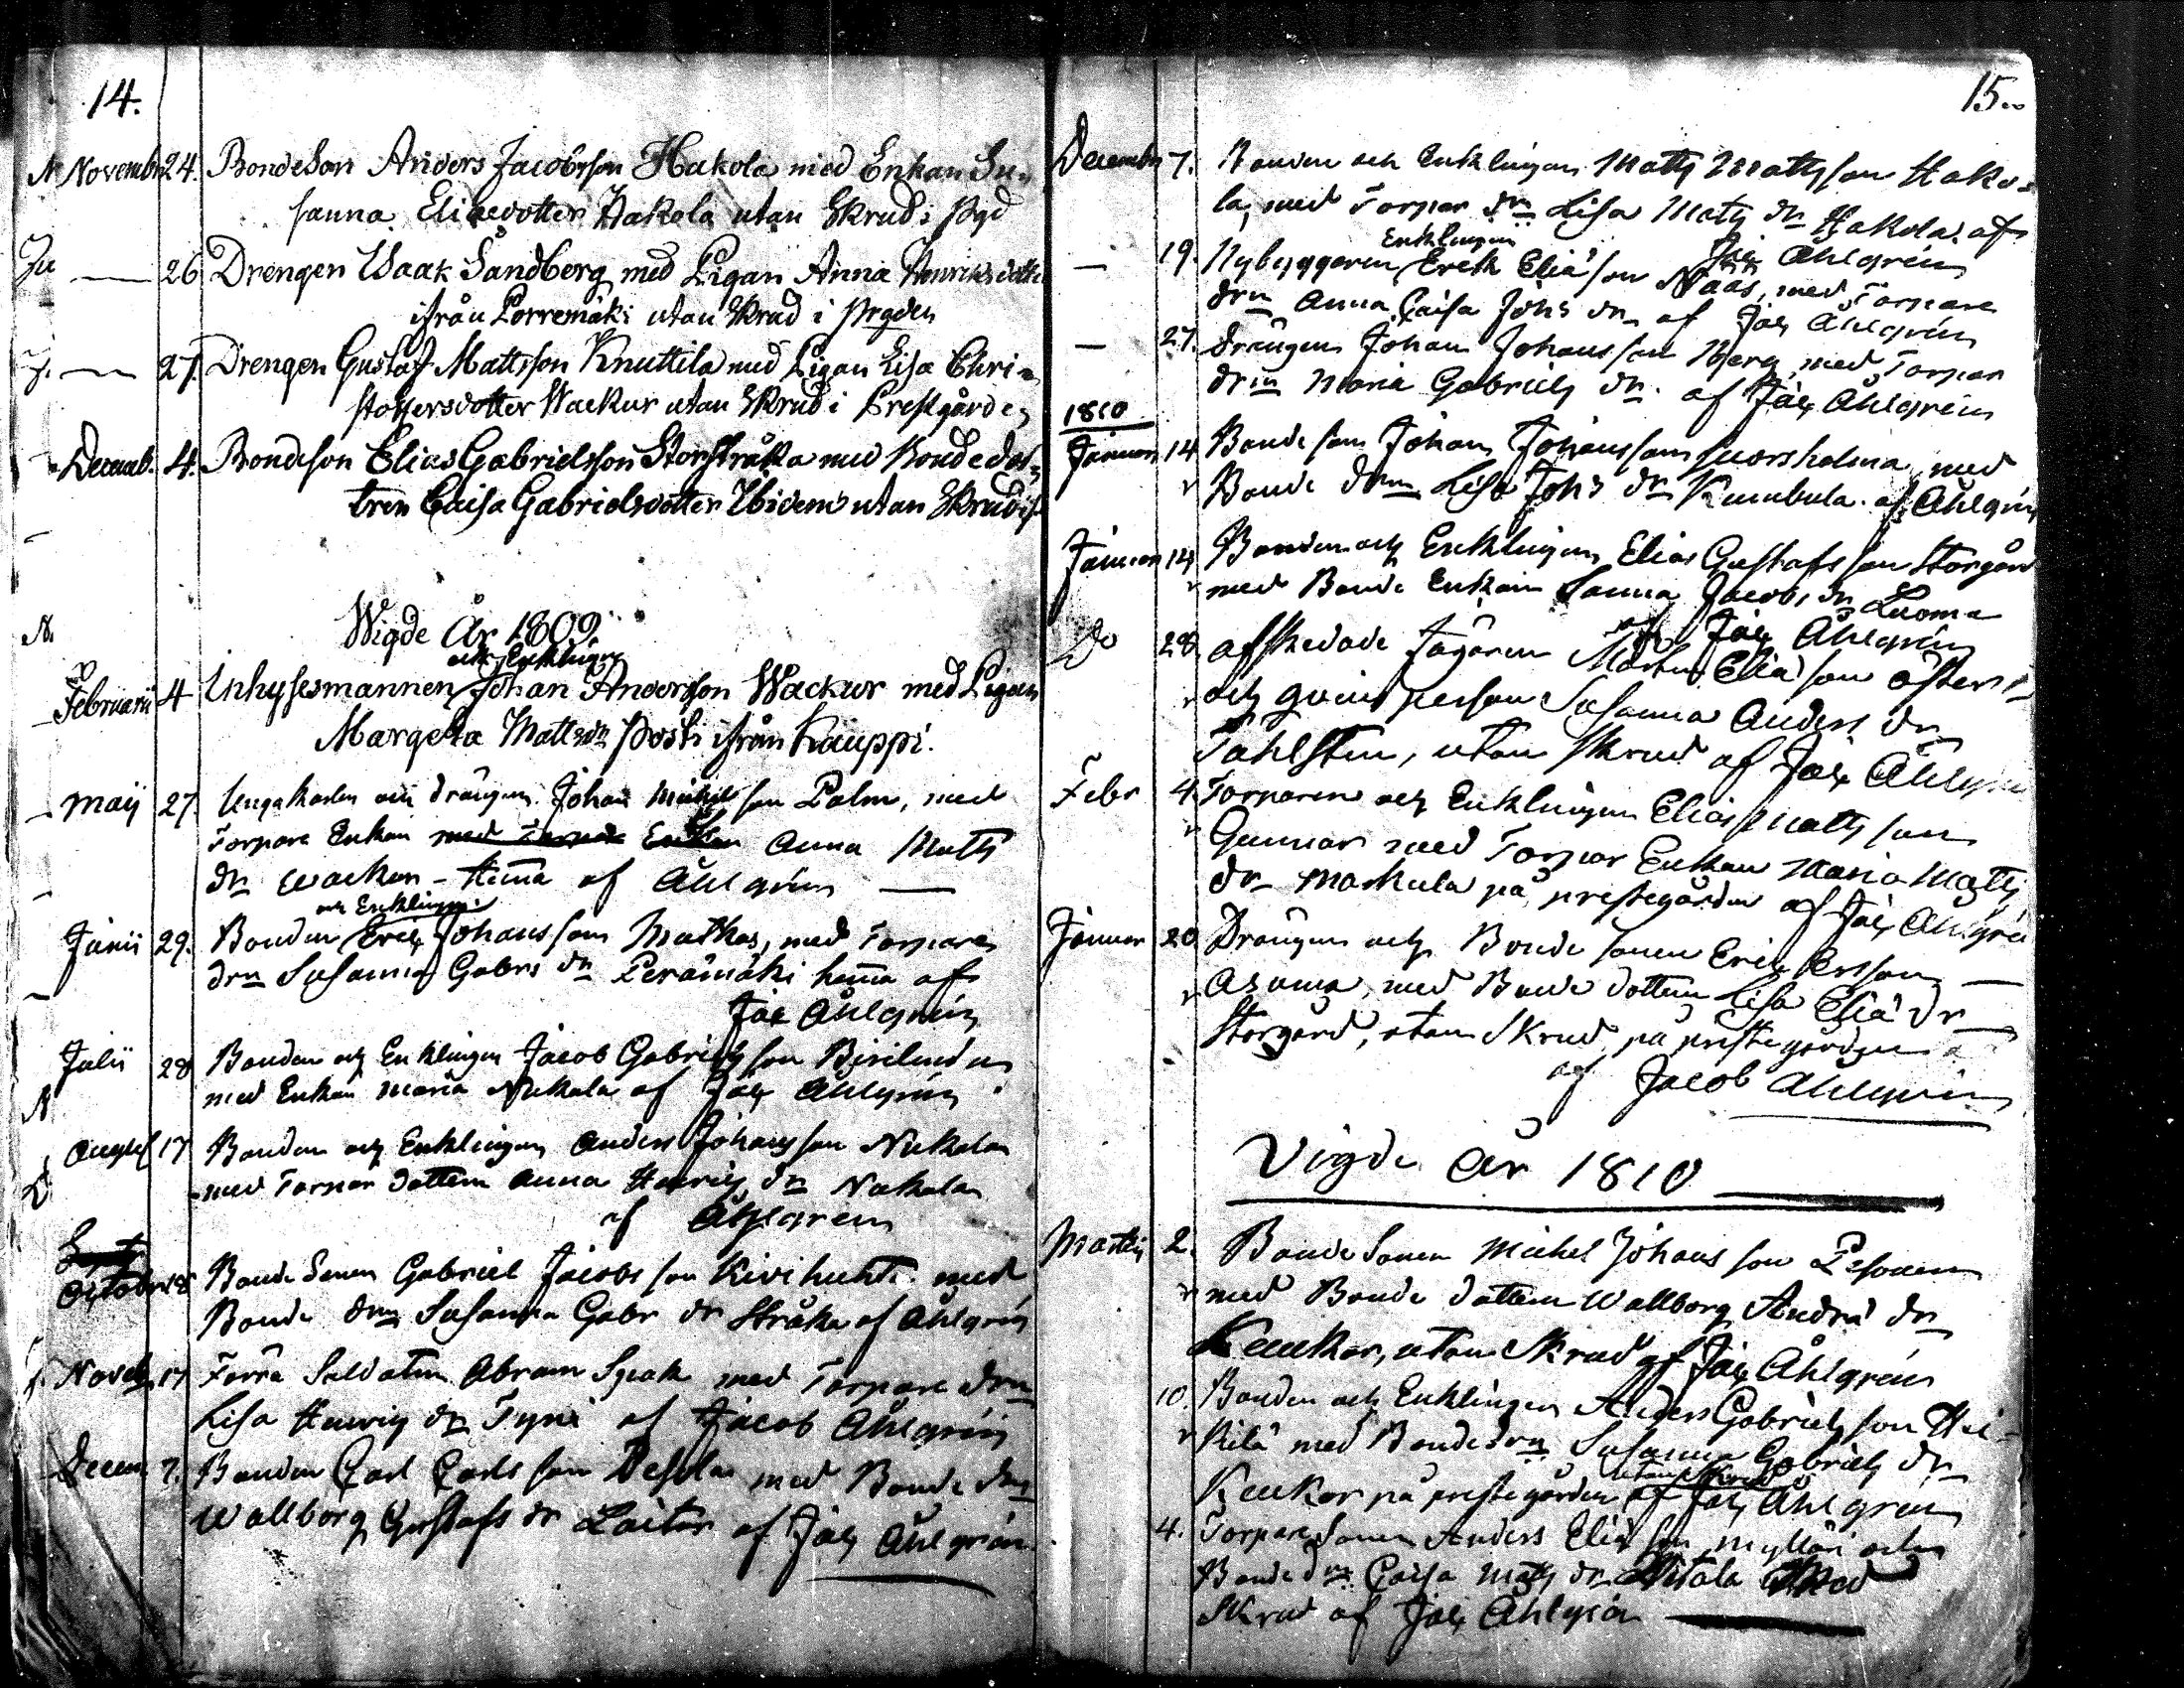 14.
Novembr 24. BondeSon Anders Jacobsson Hakola med Enkan Su-
sanna Eliaedotter Hakola utan Skrud i Pgd
26 Drengen Isaak Sandberg med Pigan Anna Henriksdotter
ifrån Porremäki utan Skrud i Prgden
27. Drengen Gustaf Mattsson Knuttila med Pigan Lisa Chri-
stoffersdotter Wackur utan Skrud i Prestgården
Decemb. 4. Bondeson Elias Gabrielsson Storstråka med Bondedot-
tren Caisa Gabrielsdotter Ibidem utan Skrud
Wigde År 1809.
och Enklingen
Februarii 4 Inhysesmannen Johan Andersson Wackur med Pigan
Margeta Mattsdr Posti ifrån Kauppi.
Maij 27. Ungakarlen och drängen Johan Michelsson Palm, med
Torpare Enkan Anna Matts
dr Wacker hema af Åhlgrén
och Enklingen
Junii 29. Bonden Erich Johansson Mathas, med Torpare
drn Susanna Gabrs dr Perämäki hema af
Jac Åhlgrén
Julii 28 Bonden och Enklingen Jacob Gabrielsson Birilund
med Enkan Maria Nukala af Jac Åhlgrén
August 17 Bonden och Enklingen Anders Johansson Nukala
med Torpar dottern Anna Henrics dr Nukala
af Åhlgren
Octobr 18 Bonde Sonen Gabriel Jacobsson Kivihuhta med
Bonde drn Susanna Gabr dr Stråka af Åhlgrén
Novembr 17 Förra Soldaten Abram Spak med Torpare drn
Lisa Henrics dr Tyni af Jacob Åhlgrén
Decem 7. Bonden Carl Carlsson med Bonde drn
Wallborg Gustafs dr Laitar af Jac Åhlgrén.
15
Decembr 7. Bonden och Enklingen Matts Mattsson Hako-
la, med Torpar drn Lisa Matts dr Hakola af
Jac Åhlgrén
Enklingen
19. Nybyggaren Erich Eliäson Naas, med Torpare
drn Anna Caisa Johs dr af Jac Åhlgrén
27. drängen Johan Johansson Berg med Torpar
drn Maria Gabriels dr. af Jac Åhlgrén
1810
Januari 14 Bonde son Johan Johansson Svorsholma, med
Bonde drn Lisa Johs dr Kumbula af Åhlgrén
Januari 14 Bonden och Enklingen Elias Gustafsson Storgård
med Bonde Enkan Sanna Jacobs dr Luoma
af Jac Åhlgrén
Do 28 afskedade Jägaren Mårten Eliäson Öster
och qvins person Susanna Anders dr
Tahlsten, utan Skrud af Jac Åhlgrén
Febr 4. Torparen och Enklingen Elias Mattsson
Gunnar med Torpar Enkan Maria Matts
dr Markula på prestegården af Jac Åhlgrén
Januar 20 Drängen och Bonde sonen Erich Ersson
Asuma, med Bonde dottern Lisa Eliä dr
Storgård, utan Skrud på prestegården
af Jacob Åhlgrén
Vigde År 1810
Martii 2. Bonde Sonen Michel Johansson Pesonen
med Bonde dottern Wallborg Andrä dr
Kauker, utan Skrud af Jac Åhlgrén
10. Bonden och Enklingen Anders Gabrielsson Hei-
kilä med Bonde drn Susanna Gabriels dr
utan Skrud
Kauker på prestegården af Jac Åhlgrén
4. Torpare Sonen Anders Eliäson Mylläri och
Bonde drn Caisa Matts dr
Skrud af Jac Åhlgrén